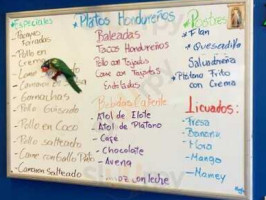 Especiales
Platos Hondureños
Postres
- Pollo en
Crema
- Pollo en Coco
- Pollo Salteado
- Carne con Gallo Pinto
- Camaron Salteado
Baleadas
Tacos Hondureños
Pollo con Tajadas
Carne con Tajadas
Enchiladas
Bebidas Caliente
Atol de Elote
Atol de Platano
- Café
- Chocolate
- Avena
con leche
* Flan
* Quesadilla
Salvadoreña
* Platano Frito
con Crema
Licuados:
- Fresa
- Banano
- Mora
- Mango
- Mamey